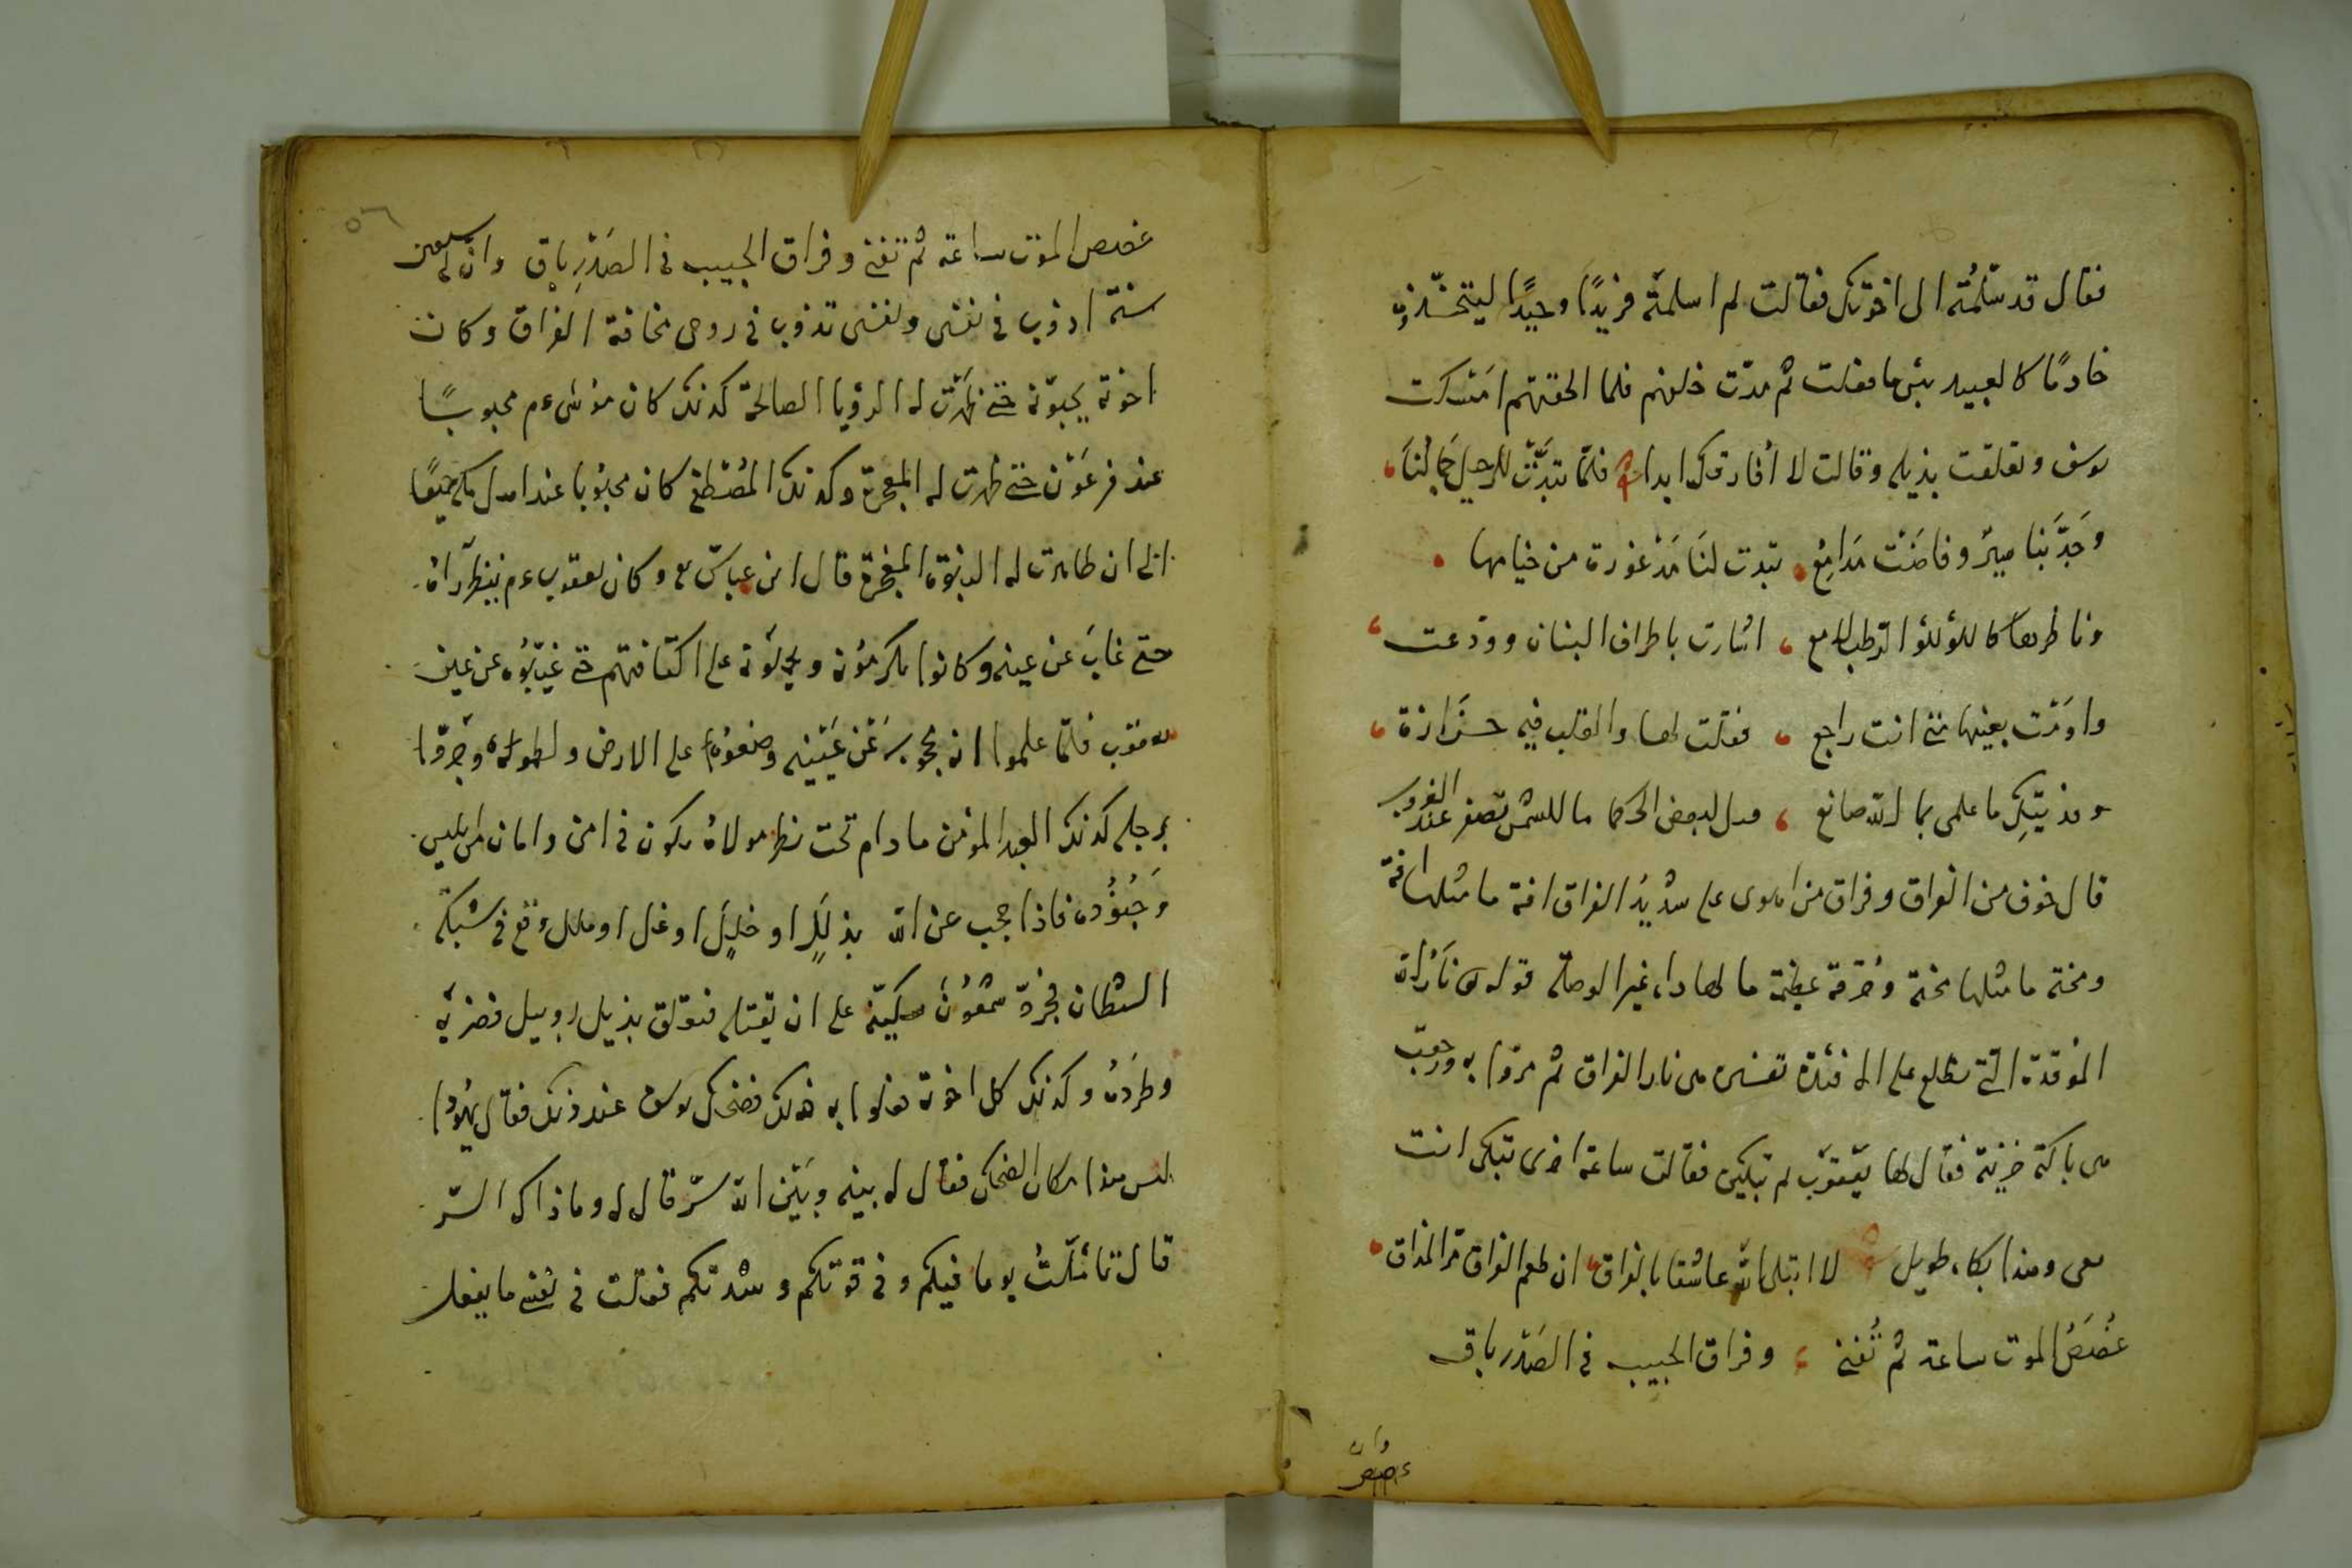 فقال قد سلّمتُه الى اخوتك فقالت لم اسلمتَه فريدًا وحيدًا ليتخذوه
خادمًا كالعبيد بئس ما فعلت ثم مرّت خلفهم فلما الحقتهم امسكت
يوسف وتعلقت بذيله وقالت لا أفارقك ابدا فلمّا تبدّت للرحيل جمالُنا
وَجدَّ بنا سيرٌ وفاضَت مَدامِعُ تبدت لنَا مَذْعورة من خيامها
وناظرها كاللؤلؤ الرطب لامع اشارت باطراف البنان وودعت
واومَت بعينها متى انت راجع فقلت لها والقلب فيه حَزازة
ما علمى بما الله صانع لبعض الحكما ما للشمس تصفر عند الغروب
قال خوف من الفراق وفراق من اهوى على شديدُ الفراق افة ما مثلها افة
ومحنة ما مثلها محنة وحُرقة عظيمة ما لها دواء غير الوصلة قوله نَارُ الله
الموقدة الّتى تطلع على الافئدة تفسيره من نار الفراق ثم مرّوا به ورجعت
هى باكية حزينة فقال لها يعقوب لم تبكين فقالت ساعة اخرى تبكى انت
معى وهذا بكاء طويل لا ابتلى الله عاشقا بالفراق ان طعم الفراق مرّ المذاق
غُصَصُ الموت ساعة ثم تُفنى وفراق الحبيب فى الصَدر باق
٥٦
غصص الموت ساعة ثم تفنى وفراق الحبيب فى الصَدْرِ باق وان لى سبعين
سنة اذوب فى نفسى ونفسى تذوب فى روحى مخافة الفراق وكانت
اخوته يحبّونه حتى ظهرَت له الرؤيا الصالحة كذلك كان موسى ءم محبوبًا
عند فرعَوْن حتى ظهرت له المعجزة وكذلك المُصْطفى كان محبُوبا عند اهل مكة جميعًا
الى ان ظاهرت له النبوّة المعجزة قال ابن عباس وكان يعقوب ءم ينظر آراهُ
حتى غابَ عن عينه وكانوا يكرمُونه ويحملُونه على اكتافهم حتى غيّبُوه عن عين
يعقوب فلمّا علموا انه محجوب عَنْ عَيْنَيه وضعُوه على الارض ولطموه وجرّوا
برجله كذلك العبد المؤمن ما دام تحت نظر مولاهُ يكون فى امن وامان من ابليس
وَجُنُوده فاذا حجب عن الله بذلَلٍ او خللٍ او غل او ملل وقع فى شبكة
الشيطان فجرّد شمعُونَ سكينه على ان يقتله فتعلق بذيل روبيل فضربه
وطردهُ وكذلك كل اخوته فعلوا به ذلك فضحك يوسف عند ذلك فقال يهُودا
ليس هذا مكان الضحك فقال له بينه وبَيْن الله سرّ قال له وما ذاك السّر
قال تأمّلتُ يوما فيكم وفى قوتكم وشدتكم فقلت فى نفسى ما يفعل